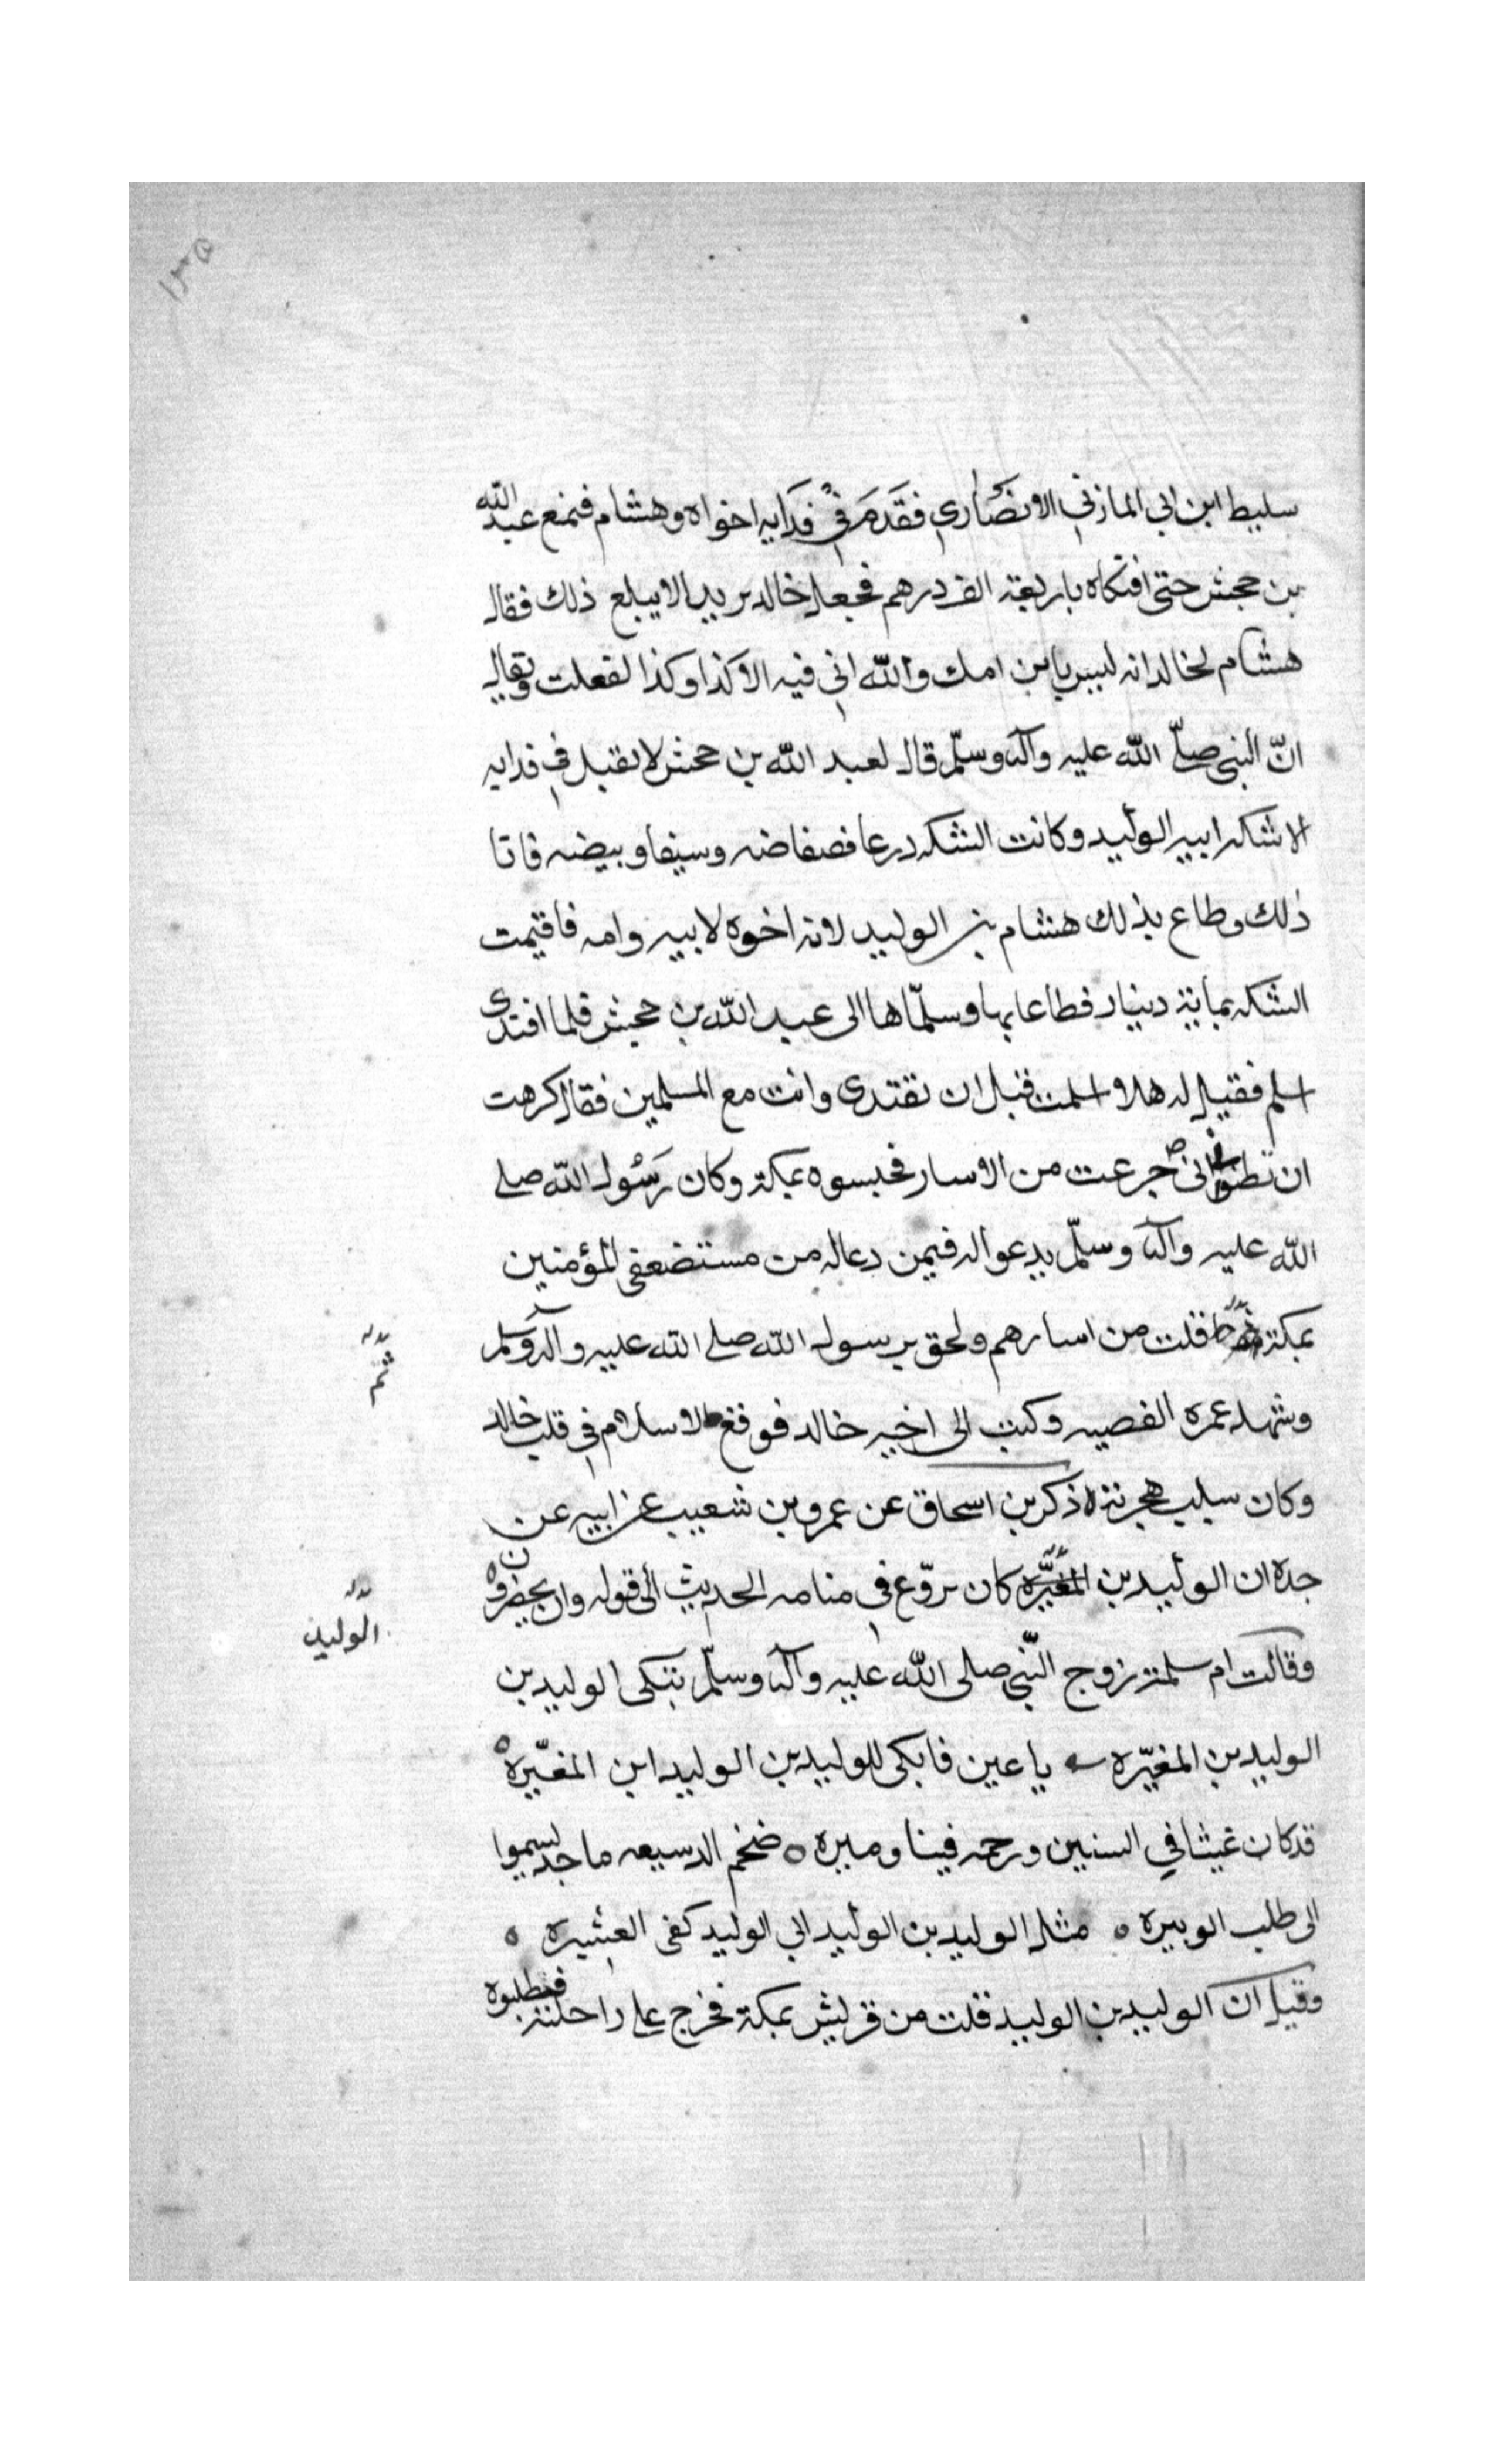 ١٣٥
سليط ابن ابي المازني الانصَاري فقَدمَ في فدَايه اخواه وهشام فمنع عبد الله
بن حجش حتى افتكاه باربعة الف درهم فجعل خالد يريد الا يبلع ذلك فقال
هشام لخالد انه ليس يابن امك والله اني فيه الا كذا وكذا لفعلت ويقال
انّ النبي صلّى الله عليه وآله وسلّم قال لعبد الله بن حجش لا تقبل في فدايه
الا شكه ابيه الوليد وكانت الشكه درعا فصفاضه وسيفا وبيضه فاتا
ذلك وطاع بذلك هشام بن الوليد لانه اخوه لابيه وامه فاقيمت
الشكه بماية دينار فطاعا بها وسلّماها الى عبد الله بن حجش فلما افتدى
اسلم فقيل له هلا اسلمت قبل ان تفتدى وانت مع المسلمين فقال كرهت
ان تظنوا اني جرعت من الاسار فحبسوه بمكة وكان رَسُول الله صلى
الله عليه وآله وسلّم يدعوا له فيمن دعا له من مستضعفي المؤمنين
بمكة فلت من اسارهم ولحق برسول الله صلى الله عليه وآله وسلم
ثم
وشهد عمره القصيه وكتب الى اخيه خالد فوقع الاسلام في قلب خالد
وكان سبب هجرته ذكر بن اسحاق عن عمرو بن شعيب عن ابيه عن
جده ان الوليد بن المغيّره كان يروّع في منامه الحديث الى قوله وان يحضرون
الوليد
وقالت ام سلمة زوج النّبي صلى الله عليه وآله وسلّم تبكى الوليد بن
الوليد بن المغيّره يا عين فابكي للوليد بن الوليد ابن المغيّره
قد كان غيثا في السنين ورحمه فينا وميره ضخم الدسيعه ماجد يسموا
الى طلب الوبيره مثل الوليد بن الوليد ابي الوليد كفى العشيره
وقيل ان الوليد بن الوليد فلت من قريش بمكة فخرج على راحلته فطلبوه